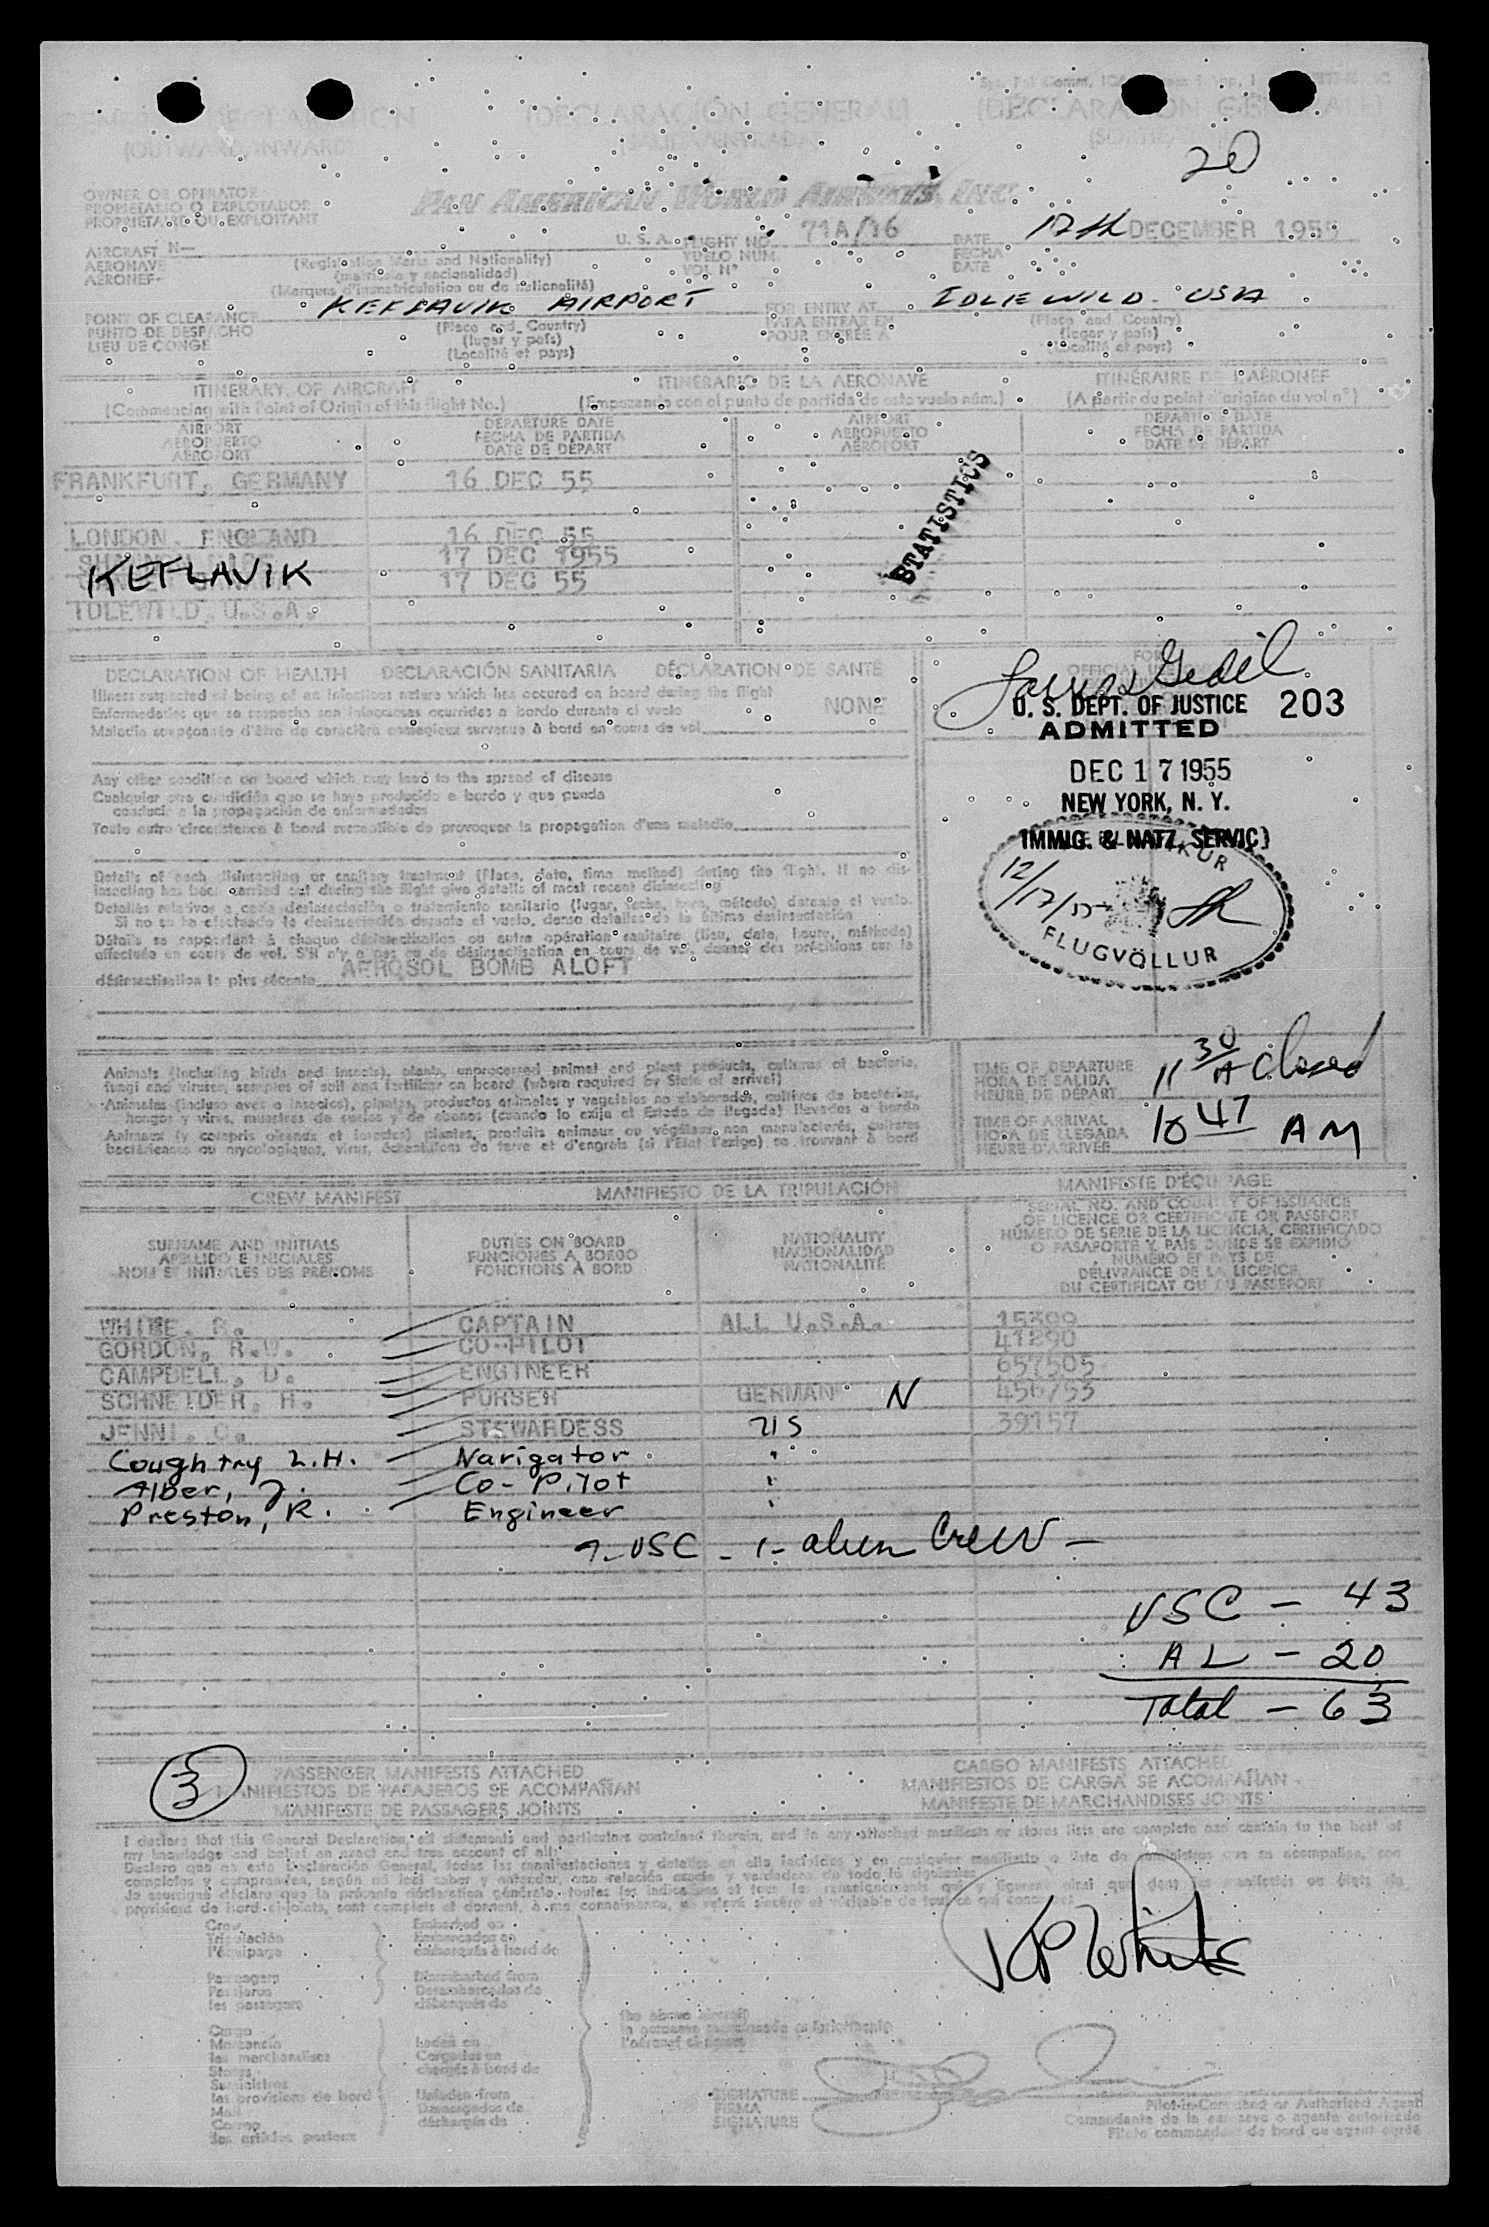 (DECLARACIÓN GENERAL)
20
OWNER OR OPERATOR
PROPIETARIO O EXPLOTADOR
PROPRIÉTAIRE OU EXPLOITANT
PAN AMERICAN WORLD AIRWAYS, INC
AIRCRAFT N—
AERONAVE
AÉRONEF
U. S. A. FLIGHT NO. 71A/16 DATE 17th DECEMBER 1955
VUELO NUM. FECHA
VOL N° DATE
(Registration Marks and Nationality)
(matrícula y nacionalidad)
(Marques d'immatriculation ou de nationalité)
POINT OF CLEARANCE KEFLAVIK AIRPORT FOR ENTRY AT IDLEWILD USA
PUNTO DE DESPACHO PARA ENTRAR EN
LIEU DE CONGÉ POUR ENTRÉE À
(Place and Country) (Place and Country)
(lugar y país) (lugar y país)
(Localité et pays) (Localité et pays)
ITINERARY OF AIRCRAFT ITINERARIO DE LA AERONAVE ITINÉRAIRE DE L'AÉRONEF
(Commencing with Point of Origin of this flight No.) (Empezando con el punto de partida de este vuelo núm.) (A partir du point d'origine du vol n°)
AIRPORT DEPARTURE DATE AIRPORT DEPARTURE DATE
AEROPUERTO FECHA DE PARTIDA AEROPUERTO FECHA DE PARTIDA
AÉROPORT DATE DE DÉPART AÉROPORT DATE DE DÉPART
FRANKFURT, GERMANY 16 DEC 55
STATISTICS
LONDON, ENGLAND 16 DEC 55
17 DEC 1955
KEFLAVIK 17 DEC 55
IDLEWILD, U.S.A.
DECLARATION OF HEALTH DECLARACIÓN SANITARIA DÉCLARATION DE SANTÉ
Illness suspected of being of an infectious nature which has occured on board during the flight
NONE
Enfermedades que se sospecha son infecciosas ocurridas a bordo durante el vuelo
Maladie soupçonnée d'être de caractère contagieux survenue à bord en cours de vol
U. S. DEPT. OF JUSTICE 203
ADMITTED
DEC 17 1955
NEW YORK, N. Y.
IMMIG. & NATZ. SERVIC)
12/17/55
FLUGVÖLLUR
Any other condition on board which may lead to the spread of disease
Cualquier otra condición que se haya producido a bordo y que pueda
conducir a la propagación de enfermedades
Toute autre circonstance à bord susceptible de provoquer la propagation d'une maladie
Details of each disinsecting or sanitary treatment (Place, date, time, method) during the flight. If no dis-
insecting has been carried out during the flight give details of most recent disinsecting
Detalles relativos a cada desinsectación o tratamiento sanitario (lugar, fecha, hora, método) durante el vuelo.
Si no se ha efectuado la desinsectación durante el vuelo, dense detalles de la última desinsectación
Détails se rapportant à chaque désinsectisation ou autre opération sanitaire (lieu, date, heure, méthode)
effectuée en cours de vol. S'il n'y a pas eu de désinsectisation en cours de vol, donner des précisions sur la
désinsectisation la plus récente AEROSOL BOMB ALOFT
Animals (including birds and insects), plants, unprocessed animal and plant products, cultures of bacteria,
fungi and viruses, samples of soil and fertilizer on board (where required by State of arrival)
Animales (incluso aves o insectos), plantas, productos animales y vegetales no elaborados, cultivos de bacterias,
hongos y virus, muestras de suelos y de abonos (cuando lo exija el Estado de llegada) llevados a bordo
Animaux (y compris oiseaux et insectes) plantes, produits animaux ou végétaux non manufacturés, cultures
bactériennes ou mycologiques, virus, échantillons de terre et d'engrais (si l'État l'exige) se trouvant à bord
TIME OF DEPARTURE 11 30 A closed
HORA DE SALIDA
HEURE DE DÉPART
TIME OF ARRIVAL 10 47 AM
HORA DE LLEGADA
HEURE D'ARRIVÉE
CREW MANIFEST MANIFIESTO DE LA TRIPULACIÓN MANIFESTE D'ÉQUIPAGE
SURNAME AND INITIALS DUTIES ON BOARD NATIONALITY SERIAL NO. AND COUNTRY OF ISSUANCE
APELLIDO E INICIALES FUNCIONES A BORDO NACIONALIDAD OF LICENCE OR CERTIFICATE OR PASSPORT
NOM ET INITIALES DES PRÉNOMS FONCTIONS À BORD NATIONALITÉ NÚMERO DE SERIE DE LA LICENCIA, CERTIFICADO
O PASAPORTE Y PAÍS DONDE SE EXPIDIÓ
NUMÉRO ET PAYS DE
DÉLIVRANCE DE LA LICENCE
DU CERTIFICAT OU DU PASSEPORT
WHITE, CAPTAIN ALL U.S.A. 15399
GORDON, R.W. CO-PILOT 41290
CAMPBELL, D. ENGINEER 657505
SCHNEIDER, H. PURSER GERMAN N 456753
JENNI, C. STEWARDESS US 39157
Coughtry L.H. Navigator "
Alber, J. Co-Pilot "
Preston, R. Engineer "
7-USC - 1-alien Crew -
USC - 43
AL - 20
Total - 63
3
PASSENGER MANIFESTS ATTACHED CARGO MANIFESTS ATTACHED
MANIFIESTOS DE PASAJEROS SE ACOMPAÑAN MANIFIESTOS DE CARGA SE ACOMPAÑAN
MANIFESTE DE PASSAGERS JOINTS MANIFESTE DE MARCHANDISES JOINTS
I declare that this General Declaration, all statements and particulars contained therein, and in any attached manifests or stores lists are complete and contain to the best of
my knowledge and belief an exact and true account of all:
Crew Embarked on
Tripulación Embarcados en
l'équipage embarqués à bord de
Passengers Disembarked from
Pasajeros Desembarcados de
les passagers débarqués de
the above aircraft
Cargo
Mercancía Laden on
les marchandises Cargados en
Stores chargés à bord de
Suministros
les provisions de bord Unladen from
Mail Descargados de
Correo déchargés de
les articles postaux
SIGNATURE
FIRMA
SIGNATURE
Pilot-in-Command or Authorized Agent
Comandante de la aeronave o agente autorizado
Pilote commandant de bord ou agent agréé